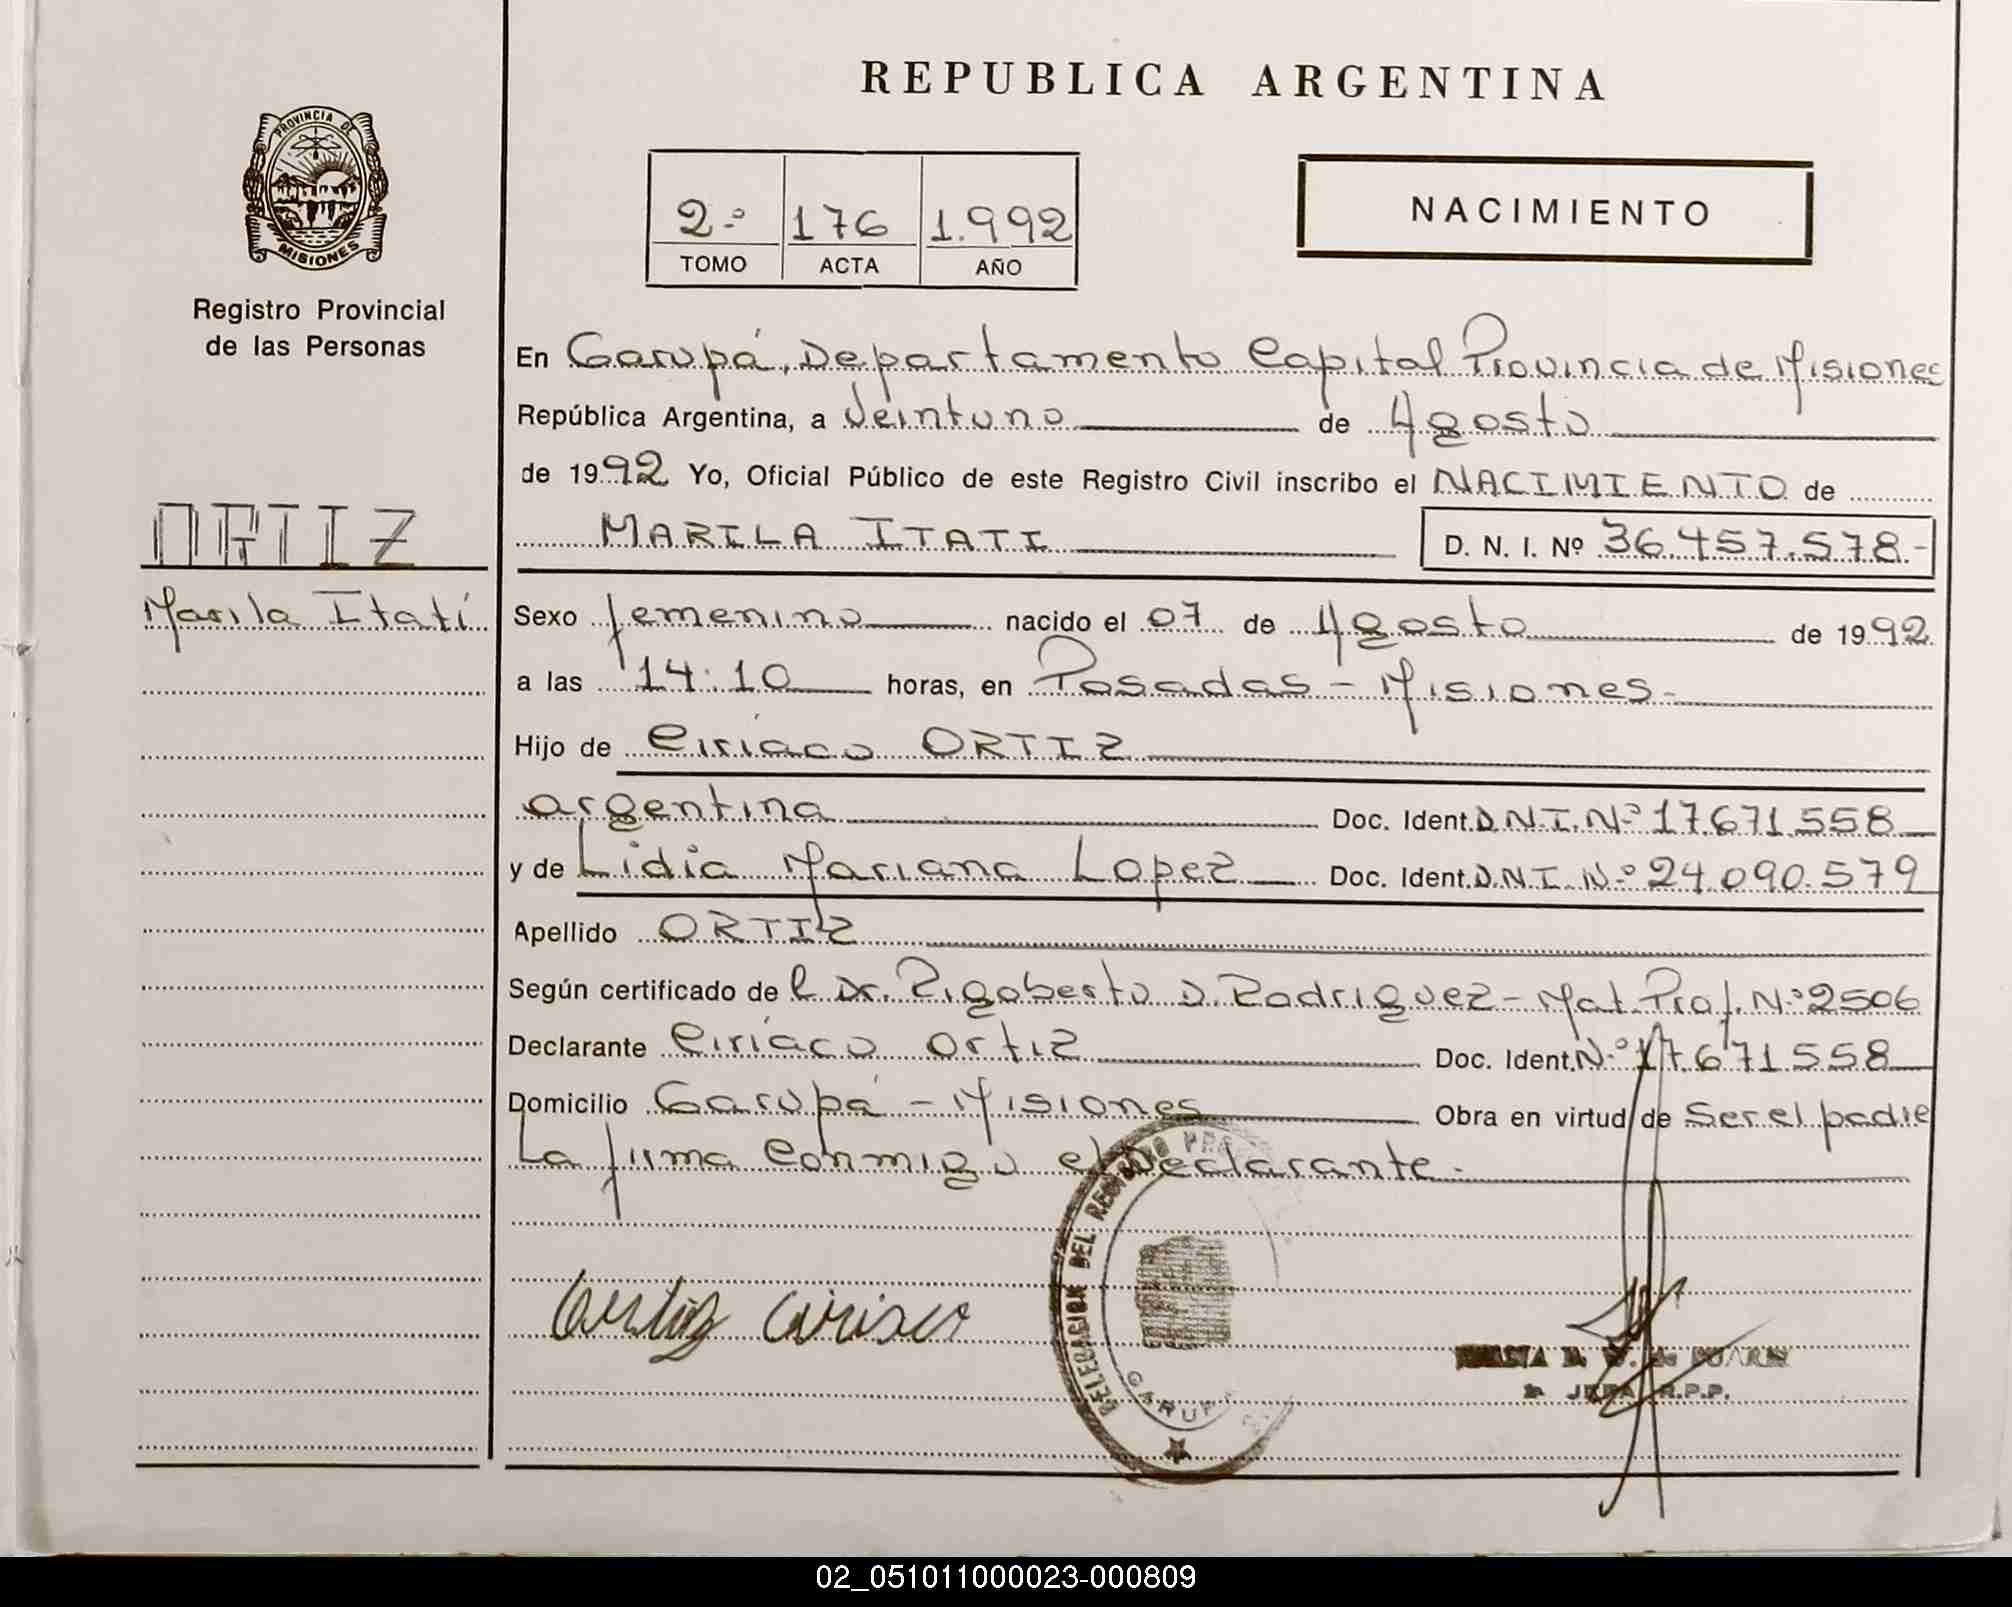 REPUBLICA ARGENTINA
PROVINCIA DE
MISIONES
Registro Provincial
de las Personas
2º 176 1.992
TOMO ACTA AÑO
NACIMIENTO
En Garupá, Departamento Capital Provincia de Misiones
República Argentina, a Veintuno de Agosto
de 1992 Yo, Oficial Público de este Registro Civil inscribo el NACIMIENTO de
MARILA ITATI D. N. I. Nº 36.457.578.-
ORTIZ
Marila Itatí
Sexo femenino nacido el 07 de Agosto de 1992
a las 14:10 horas, en Posadas - Misiones.
Hijo de Ciríaco ORTIZ
argentina Doc. Ident. D.N.I. Nº 17.671.558
y de Lidia Mariana Lopez Doc. Ident. D.N.I. Nº 24.090.579
Apellido ORTIZ
Según certificado del Dr. Rigoberto D. Rodriguez - Mat. Prof. Nº 2506
Declarante Ciríaco Ortiz Doc. Ident. Nº 17.671.558
Domicilio Garupá - Misiones Obra en virtud de Ser el padre
La firma conmigo el Declarante.-
DELEGACION DEL REGISTRO
GARUPA
Ortiz Ciriaco
JEFA R.P.P.
02_051011000023-000809